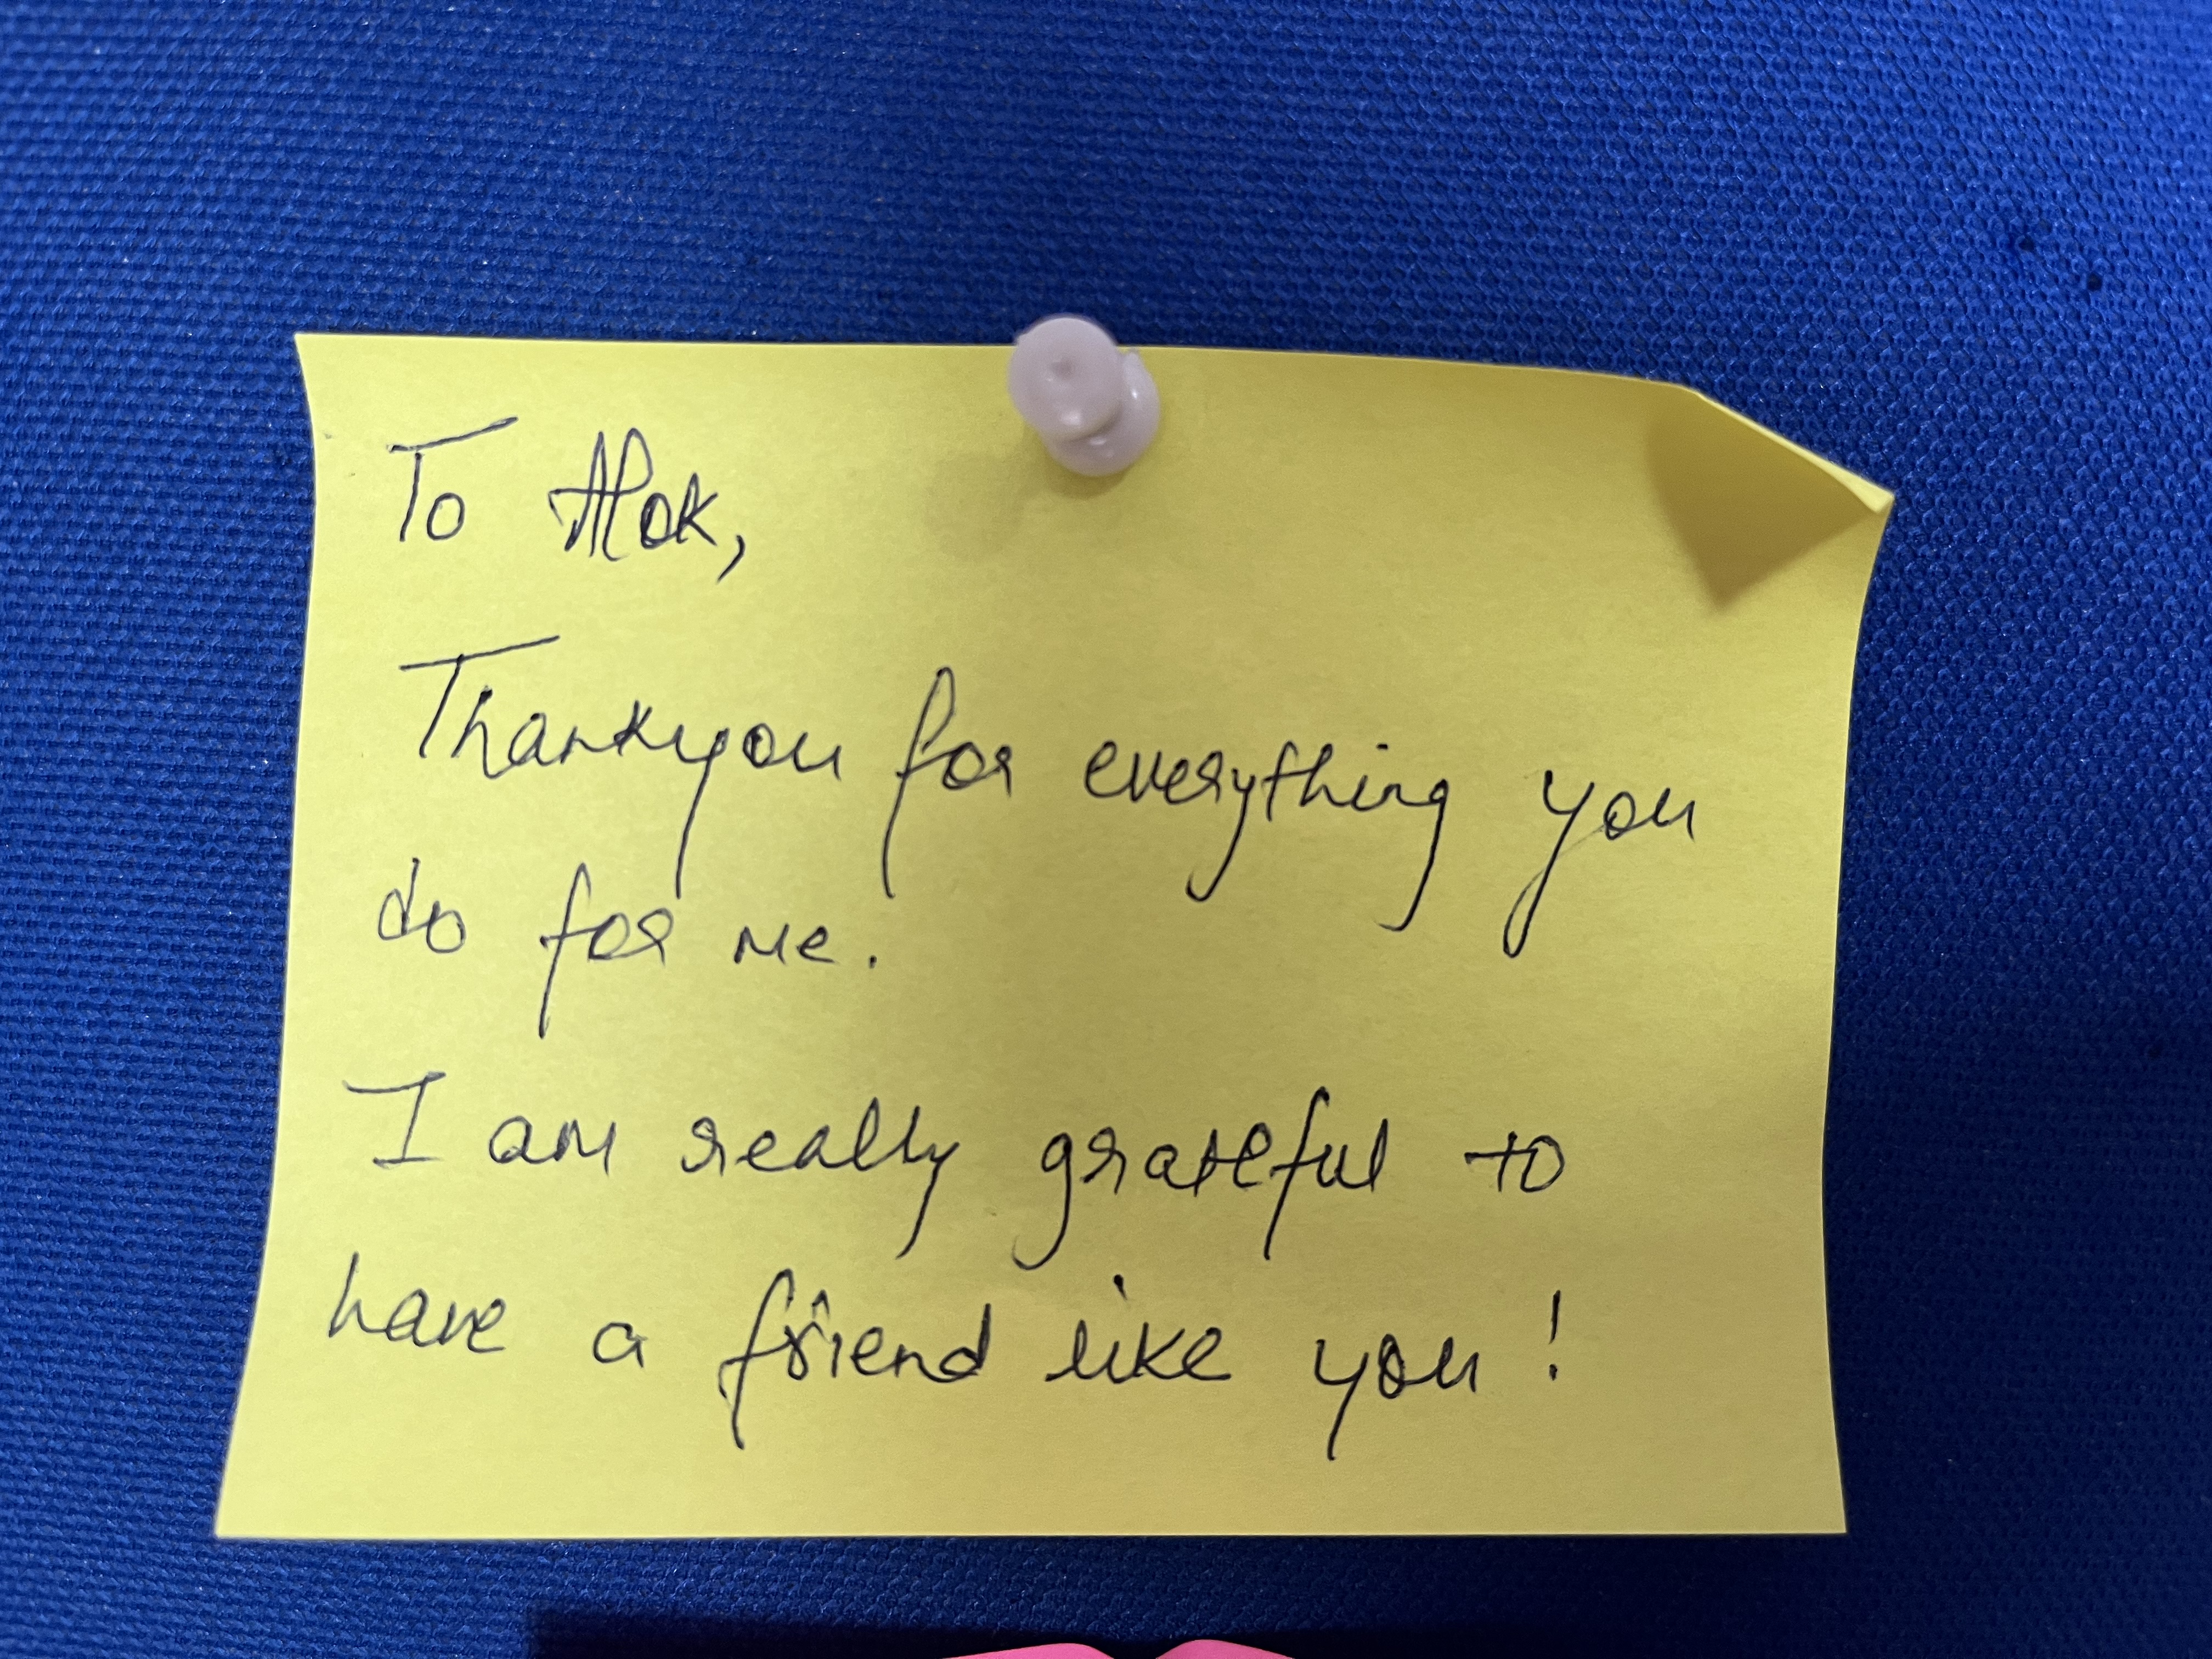 To Alok,
Thankyou for everything you
do for me.
I am really grateful to
have a friend like you!